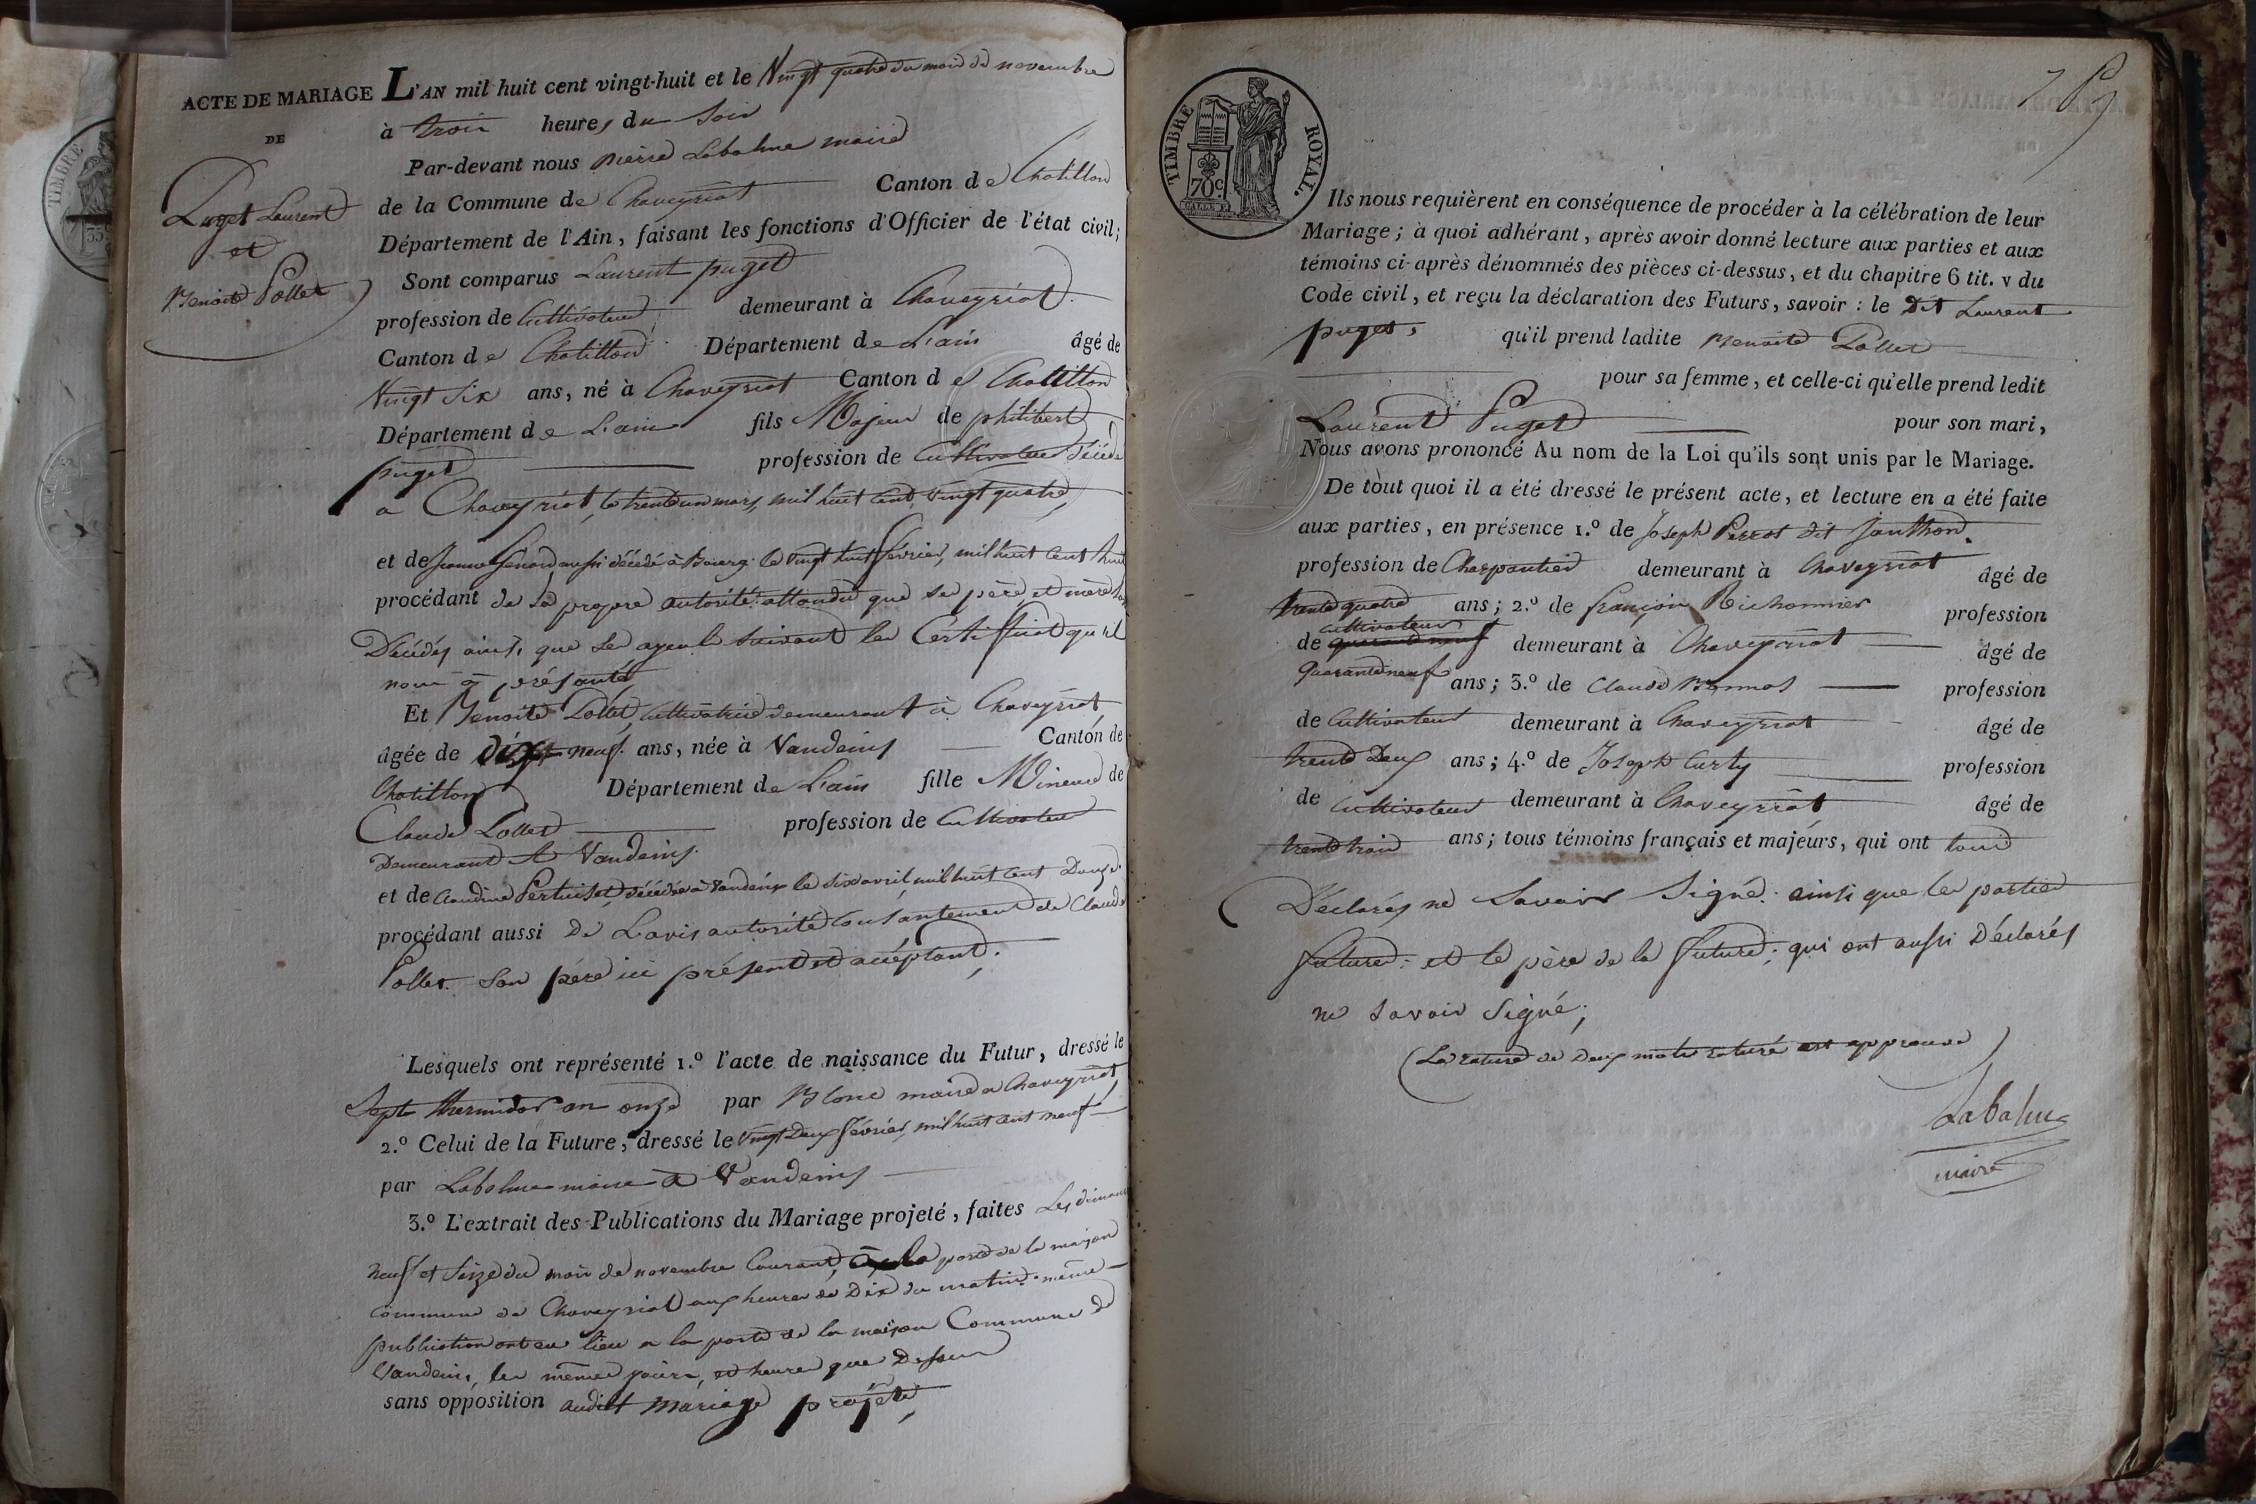 ACTE DE MARIAGE
DE
Puget Laurent
et
Benoite Pollet
TIMBRE
L'AN mil huit cent vingt-huit et le Vingt quatre du mois de novembre
à trois heures du Soir
Par-devant nous pierre Labalme maire
de la Commune de Chaveyriat Canton de Chatillon
Département de l'Ain, faisant les fonctions d'Officier de l'état civil;
Sont comparus Laurent puget
profession de Cultivateur demeurant à Chaveyriat
Canton de Chatillon Département de L'ain âgé de
Vingt Six ans, né à Chaveyriat Canton de Chatillon
Département de L'ain fils Majeur de philibert
puget profession de Cultivateur Décédé
a Chaveyriat, le trente un mars, mil huit Cent Vingt quatre,
et de aussi décédé à Bourg le vingt huit février, mil huit Cent huit
procédant de Sa propre autorité attandu que Se père et mère
Décédés ainsi que Ses ayeuls Suivant les Certifficat qu'il
nous à présanté
Et Benoite Pollet Cultivatrice demeurant à Chaveyriat
âgée de dix neuf ans, née à Vandeins Canton de
Chatillon Département de L'ain fille Mineure de
Claude Pollet profession de Cultivateur
Demeurant A Vandeins.
et de Claudine Pertuiset, décédée à Vandeins le Six avril mil huit Cent Douze
procédant aussi De L'avis autorité Consantement de Claude
Pollet Son père ici présent et accéptant.
Lesquels ont représenté 1.º l'acte de naissance du Futur, dressé le
Sept thermidor an onze par Blanc maire a Chaveyriat
2.º Celui de la Future, dressé le Vingt Deux février, mil huit cent neuf
par Labalme maire a Vandeins
3.º L'extrait des Publications du Mariage projeté, faites Les
neuf et Seize du mois de novembre Courant, à la porte de la maison
Commune de Chaveyriat aux heures de Dix du matin même
publication ont eu lieu a la porte de la maison Commune de
Vandeins, les mêmes jours, et heures que Dessus
sans opposition audit mariage projeté,
7
TIMBRE ROYAL.
70c
Ils nous requièrent en conséquence de procéder à la célébration de leur
Mariage; à quoi adhérant, après avoir donné lecture aux parties et aux
témoins ci-après dénommés des pièces ci-dessus, et du chapitre 6 tit. v du
Code civil, et reçu la déclaration des Futurs, savoir: le Dit Laurent
puget, qu'il prend ladite Benoite Pollet
pour sa femme, et celle-ci qu'elle prend ledit
Laurent Puget pour son mari,
Nous avons prononcé Au nom de la Loi qu'ils sont unis par le Mariage.
De tout quoi il a été dressé le présent acte, et lecture en a été faite
aux parties, en présence 1.º de Joseph Perrot dit Janthon
profession de Charpantier demeurant à Chaveyriat âgé de
trante quatre ans; 2.º de françois Richonnier profession
de cultivateur demeurant à Chaveyriat âgé de
quarante neuf ans; 3.º de Claude profession
de Cultivateur demeurant à Chaveyriat âgé de
trente Deux ans; 4.º de Joseph Curty profession
de Cultivateur demeurant à Chaveyriat âgé de
trente trois ans; tous témoins français et majeurs, qui ont tous
Déclarés ne Savoir Signé. ainsi que les parties
future. et le père de la future; qui ont aussi Déclarés
ne Savoir Signé;
(La rature de Deux mots raturé est approuvé)
Labalme
maire